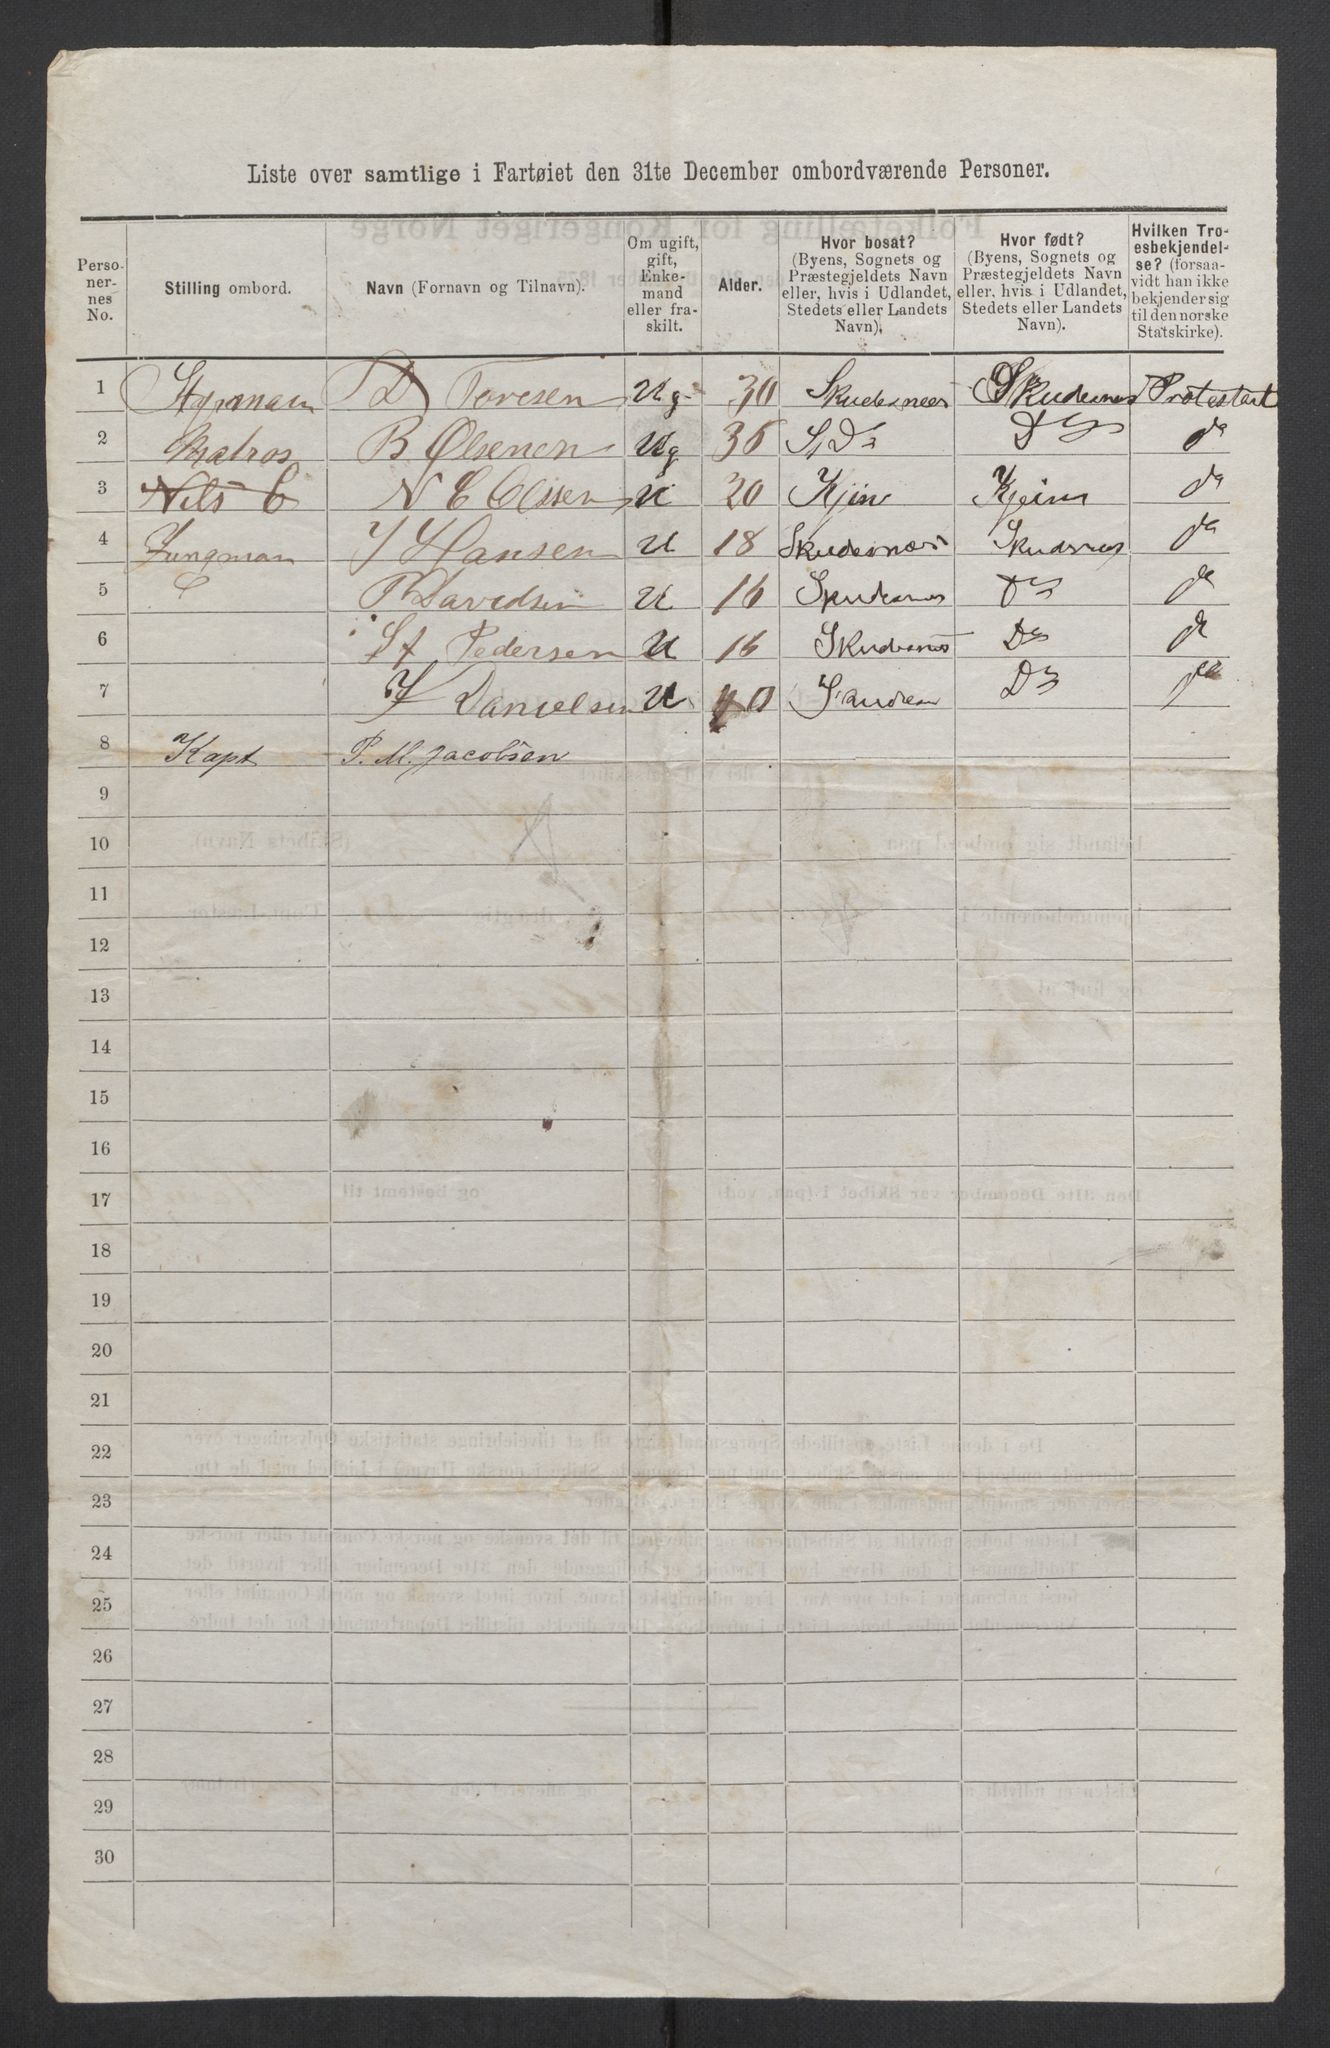 Liste over samtlige i Fartøiet den 31te December ombordværende Personer.
Personernes No.
Stilling ombord.
Navn (Fornavn og Tilnavn).
Om ugift, gift, Enkemand eller fraskilt.
Alder.
Hvor bosat? (Byens, Sognets og Præstegjeldets Navn eller, hvis i Udlandet, Stedets eller Landets Navn).
Hvor født? (Byens, Sognets og Præstegjeldets Navn eller, hvis i Udlandet, Stedets eller Landets Navn).
Hvilken Troesbekjendelse? (forsaavidt han ikke bekjender sig til den norske Statskirke).
1 Styrmain D Toresen Ug 30 Skudesnæs Skudesnes Protestart
2 Matros B Olsenen Ug 36 Do Ds da
3 Nils E N E Olssen U 20 Kjin Kjeim da
4 Jungman J Hansen U 18 Skudesnæs Skudsnes da
5 P Davedsen U 16 Skudesnes Ds da
6 Pedersen U 16 Skudesnes Ds da
7 J Danielsen U Ds da
8 Kapt P. M. Jacobsen
9
10
11
12
13
14
15
16
17
18
19
20
21
22
23
24
25
26
27
28
29
30